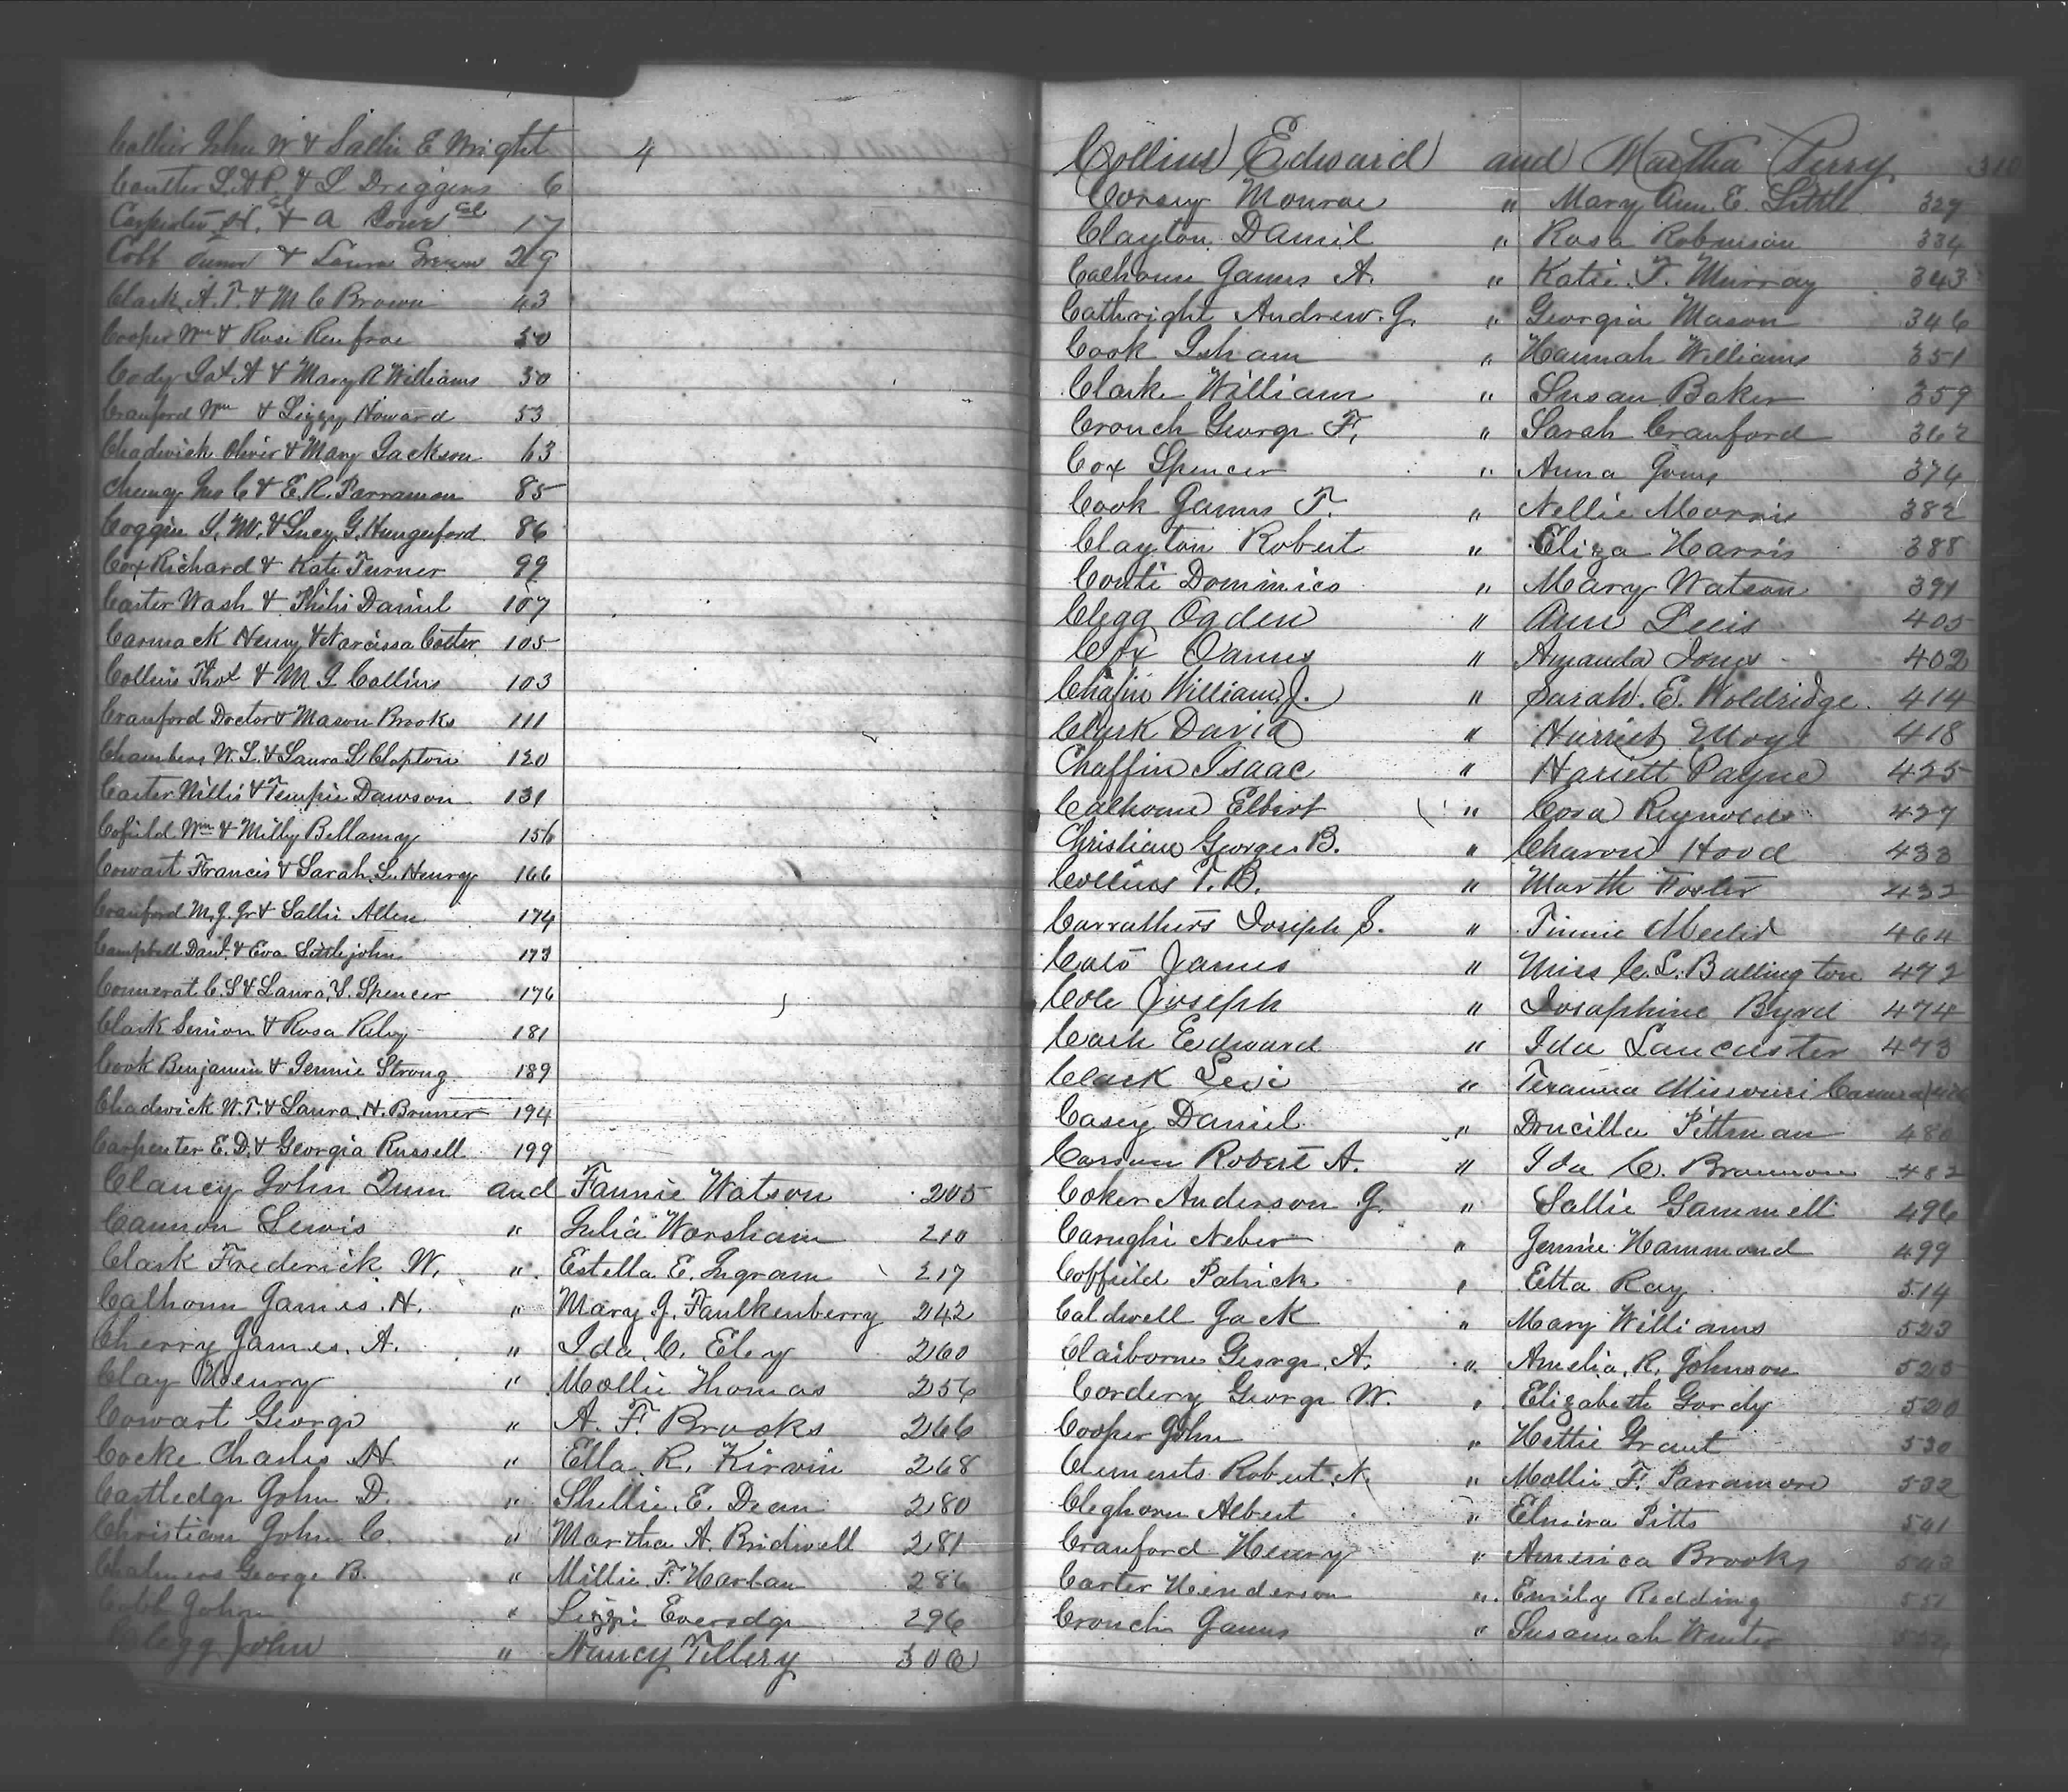 Collier John W & Sallie E Wright 4
Coulter S. A. P. & S Driggers 6
Carpenter N. col & A col 17
Cobb & Laura Green 29
Clark A. T. & M C Brown 43
Cooper Wm & Rose Renfroe 50
Cody Jas A & Mary R Williams 30
Cranford Wm & Lizzy Howard 53
Chadwick Oliver & Mary Jackson 63
Jno C & E. R. Parramon 85
Coggin S. W. & Lucy G. Hungerford 86
Cox Richard & Kate Turner 99
Carter Wash & Daniel 107
Carmack Henry & Narcissa Colter 105
Collins Thos & M J Collins 103
Cranford Doctor & Mason Brooks 111
Chambers W. L. & Laura L Clopton 120
Carter Willis & Tempie Dawson 131
Cofield Wm & Milly Bellamy 156
Cowart Francis & Sarah L. Henry 166
Cranford M. J. Jr & Sallie Allen 174
Campbell Danl. & Eva Littlejohn 173
Connerat C. S & Laura V. Spencer 176
Clark Simon & Rosa Riley 181
Cook Benjamin & Jennie Strong 189
Chadwick W. T. & Laura H. Brunner 194
Carpenter E. D. & Georgia Russell 199
Clancy John Quin and Fannie Watson 205
Cannon Lewis " Julia Worsham 210
Clark Frederick W. " Estella E. Ingram 217
Calhoun James H. " Mary J. Faulkenberry 242
Cherry James A. " Ida C. Eley 260
Clay Henry " Mollie Thomas 256
Cowart George " A. F. Brooks 266
Cocke Charles H " Ella R. Kirwin 268
Cartledge John D. " Shellie E. Dean 280
Christian John C. " Martha A. Bridwell 281
Chalmers George B. " Millie F. Harban 286
Cobb John " Lizzie Eversdge 296
Clegg John " Nancy Tillery 300
Collins Edward and Martha Perry 310
Corsey Monroe " Mary Ann E. Little 329
Clayton Daniel " Rosa Robinson 334
Calhoun James A. " Katie T. Murray 343
Cathright Andrew J. " Georgia Mason 346
Cook Isham " Hannah Williams 351
Clark William " Susan Baker 359
Crouch George F. " Sarah Cranford 362
Cox Spencer " Anna Jones 374
Cook James T. " Nellie Morris 382
Clayton Robert " Eliza Harris 388
Conti Dominico " Mary Watson 391
Clegg Ogden " Ann Lewis 405
Cox James " Amanda Jones 402
Chafin William J. " Sarah E. Woldridge 414
Clark David " Harriet Moye 418
Chaffin Isaac " Hariett Payne 425
Calhoun Elbert " Cora Reynolds 427
Christian George B. " Charon Hood 433
Collins T. B. " Marth Foster 432
Carrathers Joseph S. " Tinnie 464
Cato James " Miss C. L. Ballington 472
Cole Joseph " Josaphine Byrd 474
Cash Edward " Ida Lancaster 473
Clark Levi " Missouri
Casey Daniel " Drucilla Pittman 480
Carson Robert A. " Ida C. Brannon 482
Coker Anderson G. " Sallie Gammell 496
Carughi Neber " Jennie Hammond 499
Coffield Patrick " Etta Ray 514
Caldwell Jack " Mary Williams 523
Claiborne George A. " Amelia R. Johnson 525
Cordery George W. " Elizabeth Gordy 520
Cooper John " Hettie Grant 530
Clements Robert N. " Mollie F. Parramore 532
Cleghorn Albert " Elmira Pitts 541
Cranford Henry " America Brooks 543
Carter Henderson " Emily Redding 551
Crouch James " Susannah Winter